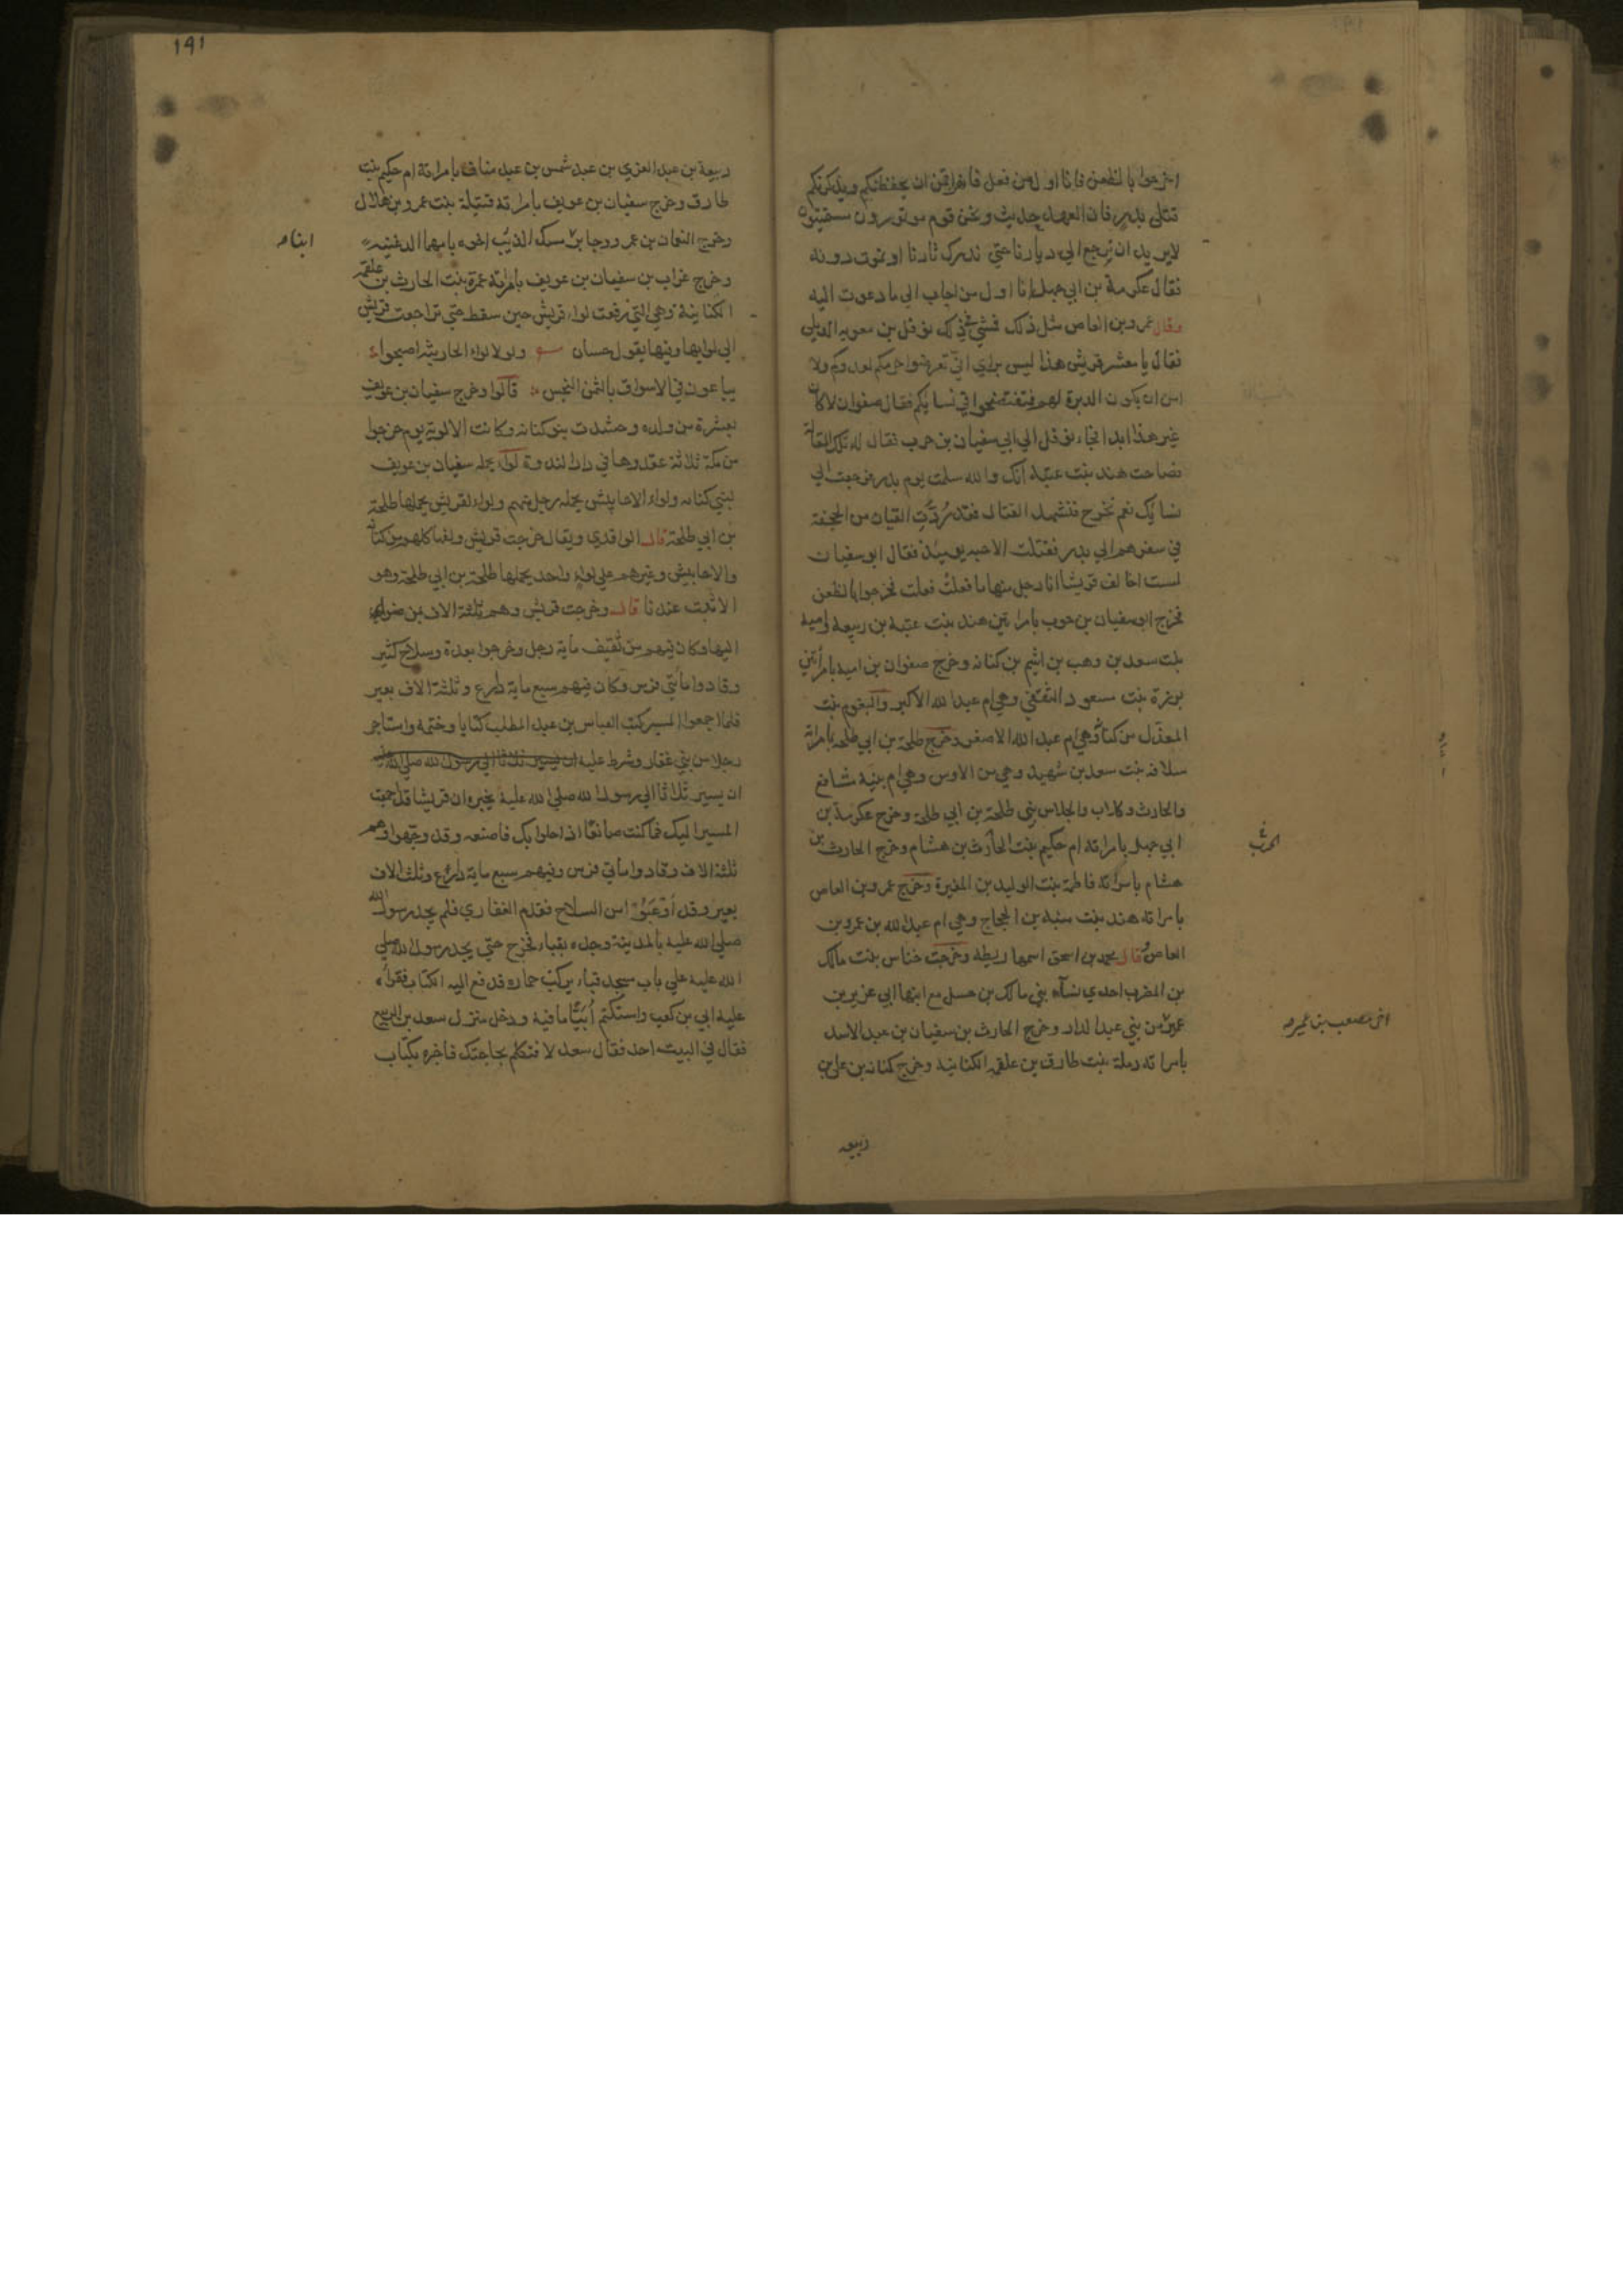 اخرجوا بالظعن فانا اول من فعل فانه اقمن ان يحفظنكم ويذكرنكم
قتلى بدر فان العهد حديث ونحن قوم موتورون مستميتون
لا يريد ان نرجع الي ديارنا حتي ندرك ثارنا او نموت دونه
فقال عكرمة بن ابي جهل انا اول من اجاب الي ما دعوت اليه
وقال عمرو بن العاص مثل ذلك فمشي في ذلك نوفل بن معويه الديلي
فقال يا معشر قريش هذا ليس براي ان تعرضوا حرمكم لعدوكم ولا
امن ان يكون الدبرة لهم فتفتضحوا في نسايكم فقال صفوان لا كان
غير هذا ابدا فجاء نوفل الي ابي سفيان بن حرب فقال له تلك المقالة
فصاحت هند بنت عتبه انك والله سلمت يوم بدر فرجعت الي
نسايك نعم نخرج فنشهد القتال فقد رُدَّتِ القيان من الجحفة
في سفرهم الي بدر فقتلت الاحبه يوميذ فقال ابو سفيان
لست اخالف قريشا انا رجل منها ما فعلتْ فعلت فخرجوا بالظعن
فخرج ابو سفيان بن حرب بامراتين هند بنت عتبة بن ربيعة واميه
بنت سعد بن وهب بن اشيم بن كنانه وخرج صفوان بن اميه بامرأتين
برزة بنت مسعود الثقفي وهي ام عبد الله الاكبر والبغوم بنت
المعذّل من كنانة وهي ام عبد الله الاصغر وخرج طلحة بن ابي طلحه بامراته
سلافه بنت سعد بن شهيد وهي من الاوس وهي ام بنيه شافع
والحارث وكلاب والجلاس بني طلحة بن ابي طلحة وخرج عكرمة بن
ابي جهل بامراته ام حكيم بنت الحارث بن هشام وخرج الحارث بن
الحرث
هشام بامراته فاطمة بنت الوليد بن المغيرة وخرج عمرو بن العاص
بامراته هند بنت منبه بن الحجاج وهي ام عبد الله بن عمرو بن
العاص وقال محمد بن اسحق اسمها ريطه وخرجت خناس بنت مالك
بن المضرب احدي نسآء بني مالك بن حسل مع ابنها ابي عزيز بن
عمير من بني عبد الدار وخرج الحارث بن سفيان بن عبد الاسد
اخي مصعب بن عمير
بامراته رملة بنت طارق بن علقمه الكنانيه وخرج كنانه بن علي بن
ربيعه
١٩١
ربيعة بن عبد العزي بن عبد شمس بن عبد مناف بامراته ام حكيم بنت
طارق وخرج سفيان بن عويف بامراته قتيلة بنت عمرو بن هلال
وخرج النعمان بن عمرو وجابر مسك الذئب اخوه بامهما الدغنيه
ابناء
وخرج غراب بن سفيان بن عويف بامراته عمرة بنت الحارث بن علقمه
الكنانية وهي التي رفعت لواء قريش حين سقط حتي تراجعت قريش
الي لوايها وفيها يقول حسان ولولا لواء الحارثيه اصبحوا
يباعون في الاسواق بالثمن النجس قالوا وخرج سفيان بن عويف
بعشرة من ولده وحشدت بنو كنانه وكانت الالوية يوم خرجوا
من مكة ثلاثة عقدوها في دار الندوة لواء يحمله سفيان بن عويف
لبني كنانه ولواء الاحابيش يحمله رجل منهم ولواء لقريش يحملها طلحة
بن ابي طلحة قال الواقدي ويقال خرجت قريش ولفها كلهم من كنانة
والاحابيش وغيرهم علي لواء واحد يحملها طلحة بن ابي طلحة وهو
الاثبت عندنا قال وخرجت قريش وهم ثلثة الاف بمن ضوي
اليها وكان فيهم من ثقيف ماية رجل وخرجوا بعدة وسلاح كثير
وقادوا مأتي فرس وكان فيهم سبع ماية دارع وثلثة الاف بعير
فلما اجمعوا المسير كتب العباس بن عبد المطلب كتابا وختمه واستاجر
رجلا من بني غفار وشرط عليه ان يسير ثلاثا الي رسول الله صلي الله عليه
ان يسير ثلاثا الي رسول الله صلي الله عليه يخبره ان قريشا قد اجمعت
المسير اليك فما كنت صانعًا اذا حلوا بك فاصنعه وقد وجّهوا وهم
ثلثة الاف وقادوا مأتي فرس وفيهم سبع ماية دارع وثلث الاف
بعير وقد أوعَبُوْا من السلاح فقدم الغفاري فلم يجد رسول الله
صلي الله عليه بالمدينة وجده بقباء فخرج حتي يجد رسول الله صلي
الله عليه علي باب مسجد قباء يركب حماره فدفع اليه الكتاب فقرأه
عليه ابي بن كعب واستكتم أُبَيًّا ما فيه ودخل منزل سعد بن الربيع
فقال في البيت احد فقال سعد لا فتكلم بحاجتك فاخبره بكتاب